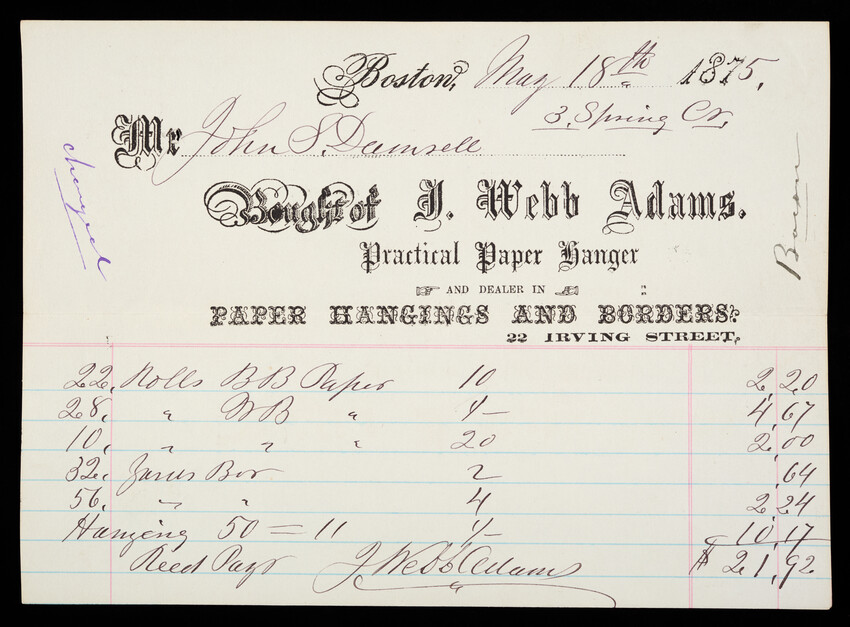 Boston, May 18th 1875.
3, Spring Ct,
Mr John S. Damrell
Bought of J. Webb Adams.
Practical Paper Hanger
AND DEALER IN
PAPER HANGINGS AND BORDERS.
22 IRVING STREET.
changed
Bacon
22, Rolls BB Paper 10 2,20
28, " WB " 4,67
10, " " " 20 2,00
32, Yards Bor 2 ,64
56, " " 4 2,24
Hanging 50 = 11 10,17
Recd Payt J Webb Adams $21,92